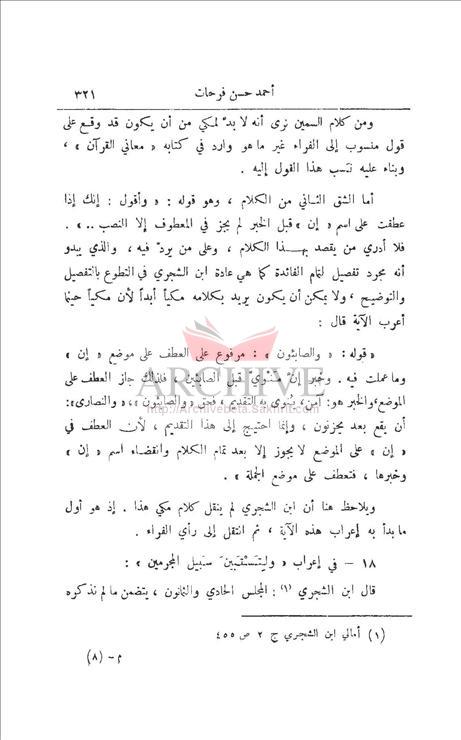 أحمد حسن فرحات ٣٢١
ومن كلام السمين نرى أنه لا بدّ لمكي من أن يكون قد وقع على
قول منسوب إلى الفراء غير ما هو وارد في كتابه « معاني القرآن » ،
وبناء عليه نسب هذا القول إليه .
أما الشق الثاني من الكلام ، وهو قوله : « وأقول : إنك إذا
عطفت على اسم « إن » قبل الخبر لم يجز في المعطوف إلا النصب .. » .
فلا أدري من يقصد بهذا الكلام ، وعلى من يردّ فيه ، والذي يبدو
أنه مجرد تفصيل لتمام الفائدة كما هي عادة ابن الشجري في التطوع بالتفصيل
والتوضيح ، ولا يمكن أن يكون يريد بكلامه مكياً أبداً لأن مكياً حينما
أعرب الآية قال :
« قوله : « والصابئون » : مرفوع على العطف على موضع « إن »
وما عملت فيه . وخبر إنّ منوي قبل الصابئين ، فلذلك جاز العطف على
الموضع، والخبر هو: آمن، يُنوى به التقديم، فحق «والصابئون»، «والنصارى»:
أن يقع بعد يحزنون ، وإنما احتيج إلى هذا التقديم ، لأن العطف في
« إن » على الموضع لا يجوز إلا بعد تمام الكلام وانقضاء اسم « إن »
وخبرها ، فتعطف على موضع الجملة » .
ويلاحظ هنا أن ابن الشجري لم ينقل كلام مكي هذا . إذ هو أول
ما بدأ به إعراب هذه الآية ، ثم انتقل إلى رأي الفراء .
١٨ – في إعراب « وليَتَسْتَبينَ سَبيل المجرمين » :
قال ابن الشجري (١) : المجلس الحادي والثمانون ، يتضمن ما لم نذكره
(١) أمالي ابن الشجري ج ٢ ص ٤٥٥
م – (٨)
ARCHIVE
http://Archivebeta.Sakhrit.com